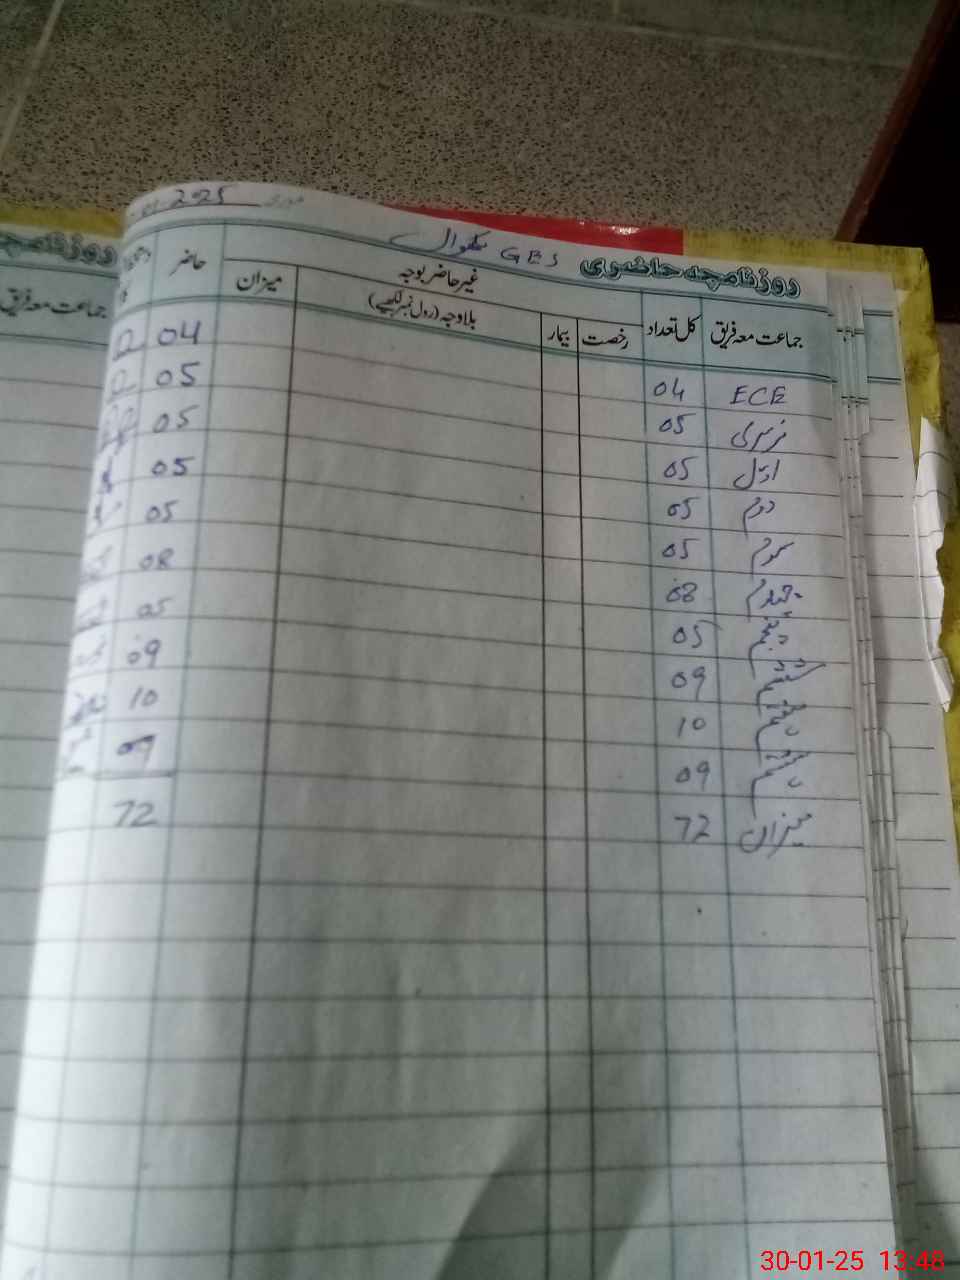 2025 مورخہ
روزنامچہ حاضری GES
جماعت معہ فریق کل تعداد غیر حاضر بوجہ میزان حاضر
رخصت بیمار بلاوجہ (رول نمبر لکھیے)
ECE 04 04
نرسری 05 05
اول 05 05
دوم 05 05
سوم 05 05
چہارم 08 08
پنجم 05 05
ششم 09 09
ہفتم 10 10
ہشتم 09 09
میزان 72 72
روزنامچہ
جماعت معہ فریق
30-01-25 13:48